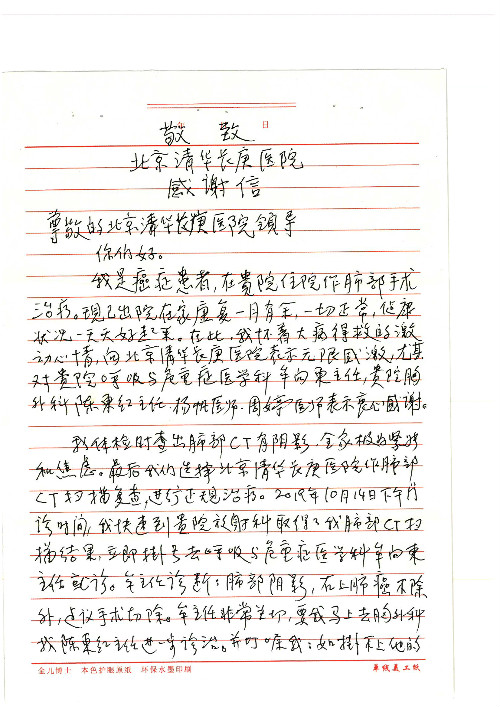 敬致
北京清华长庚医院
感谢信
尊敬的北京清华长庚医院领导
你们好。
我是癌症患者,在贵院住院作肺部手术
治疗。现已出院在家康复一月有余,一切正常,健康
状况一天天好起来。在此,我怀着大病得救的激
动心情,向北京清华长庚医院表示无限感激,尤其
对贵院呼吸与危重症医学科牟向东主任,贵院胸
外科陈 主任.杨 医师.周婷 医师表示衷心感谢。
我体检时查出肺部CT有阴影.全家极为紧张
和焦虑。最后我们选择北京清华长庚医院作肺部
CT扫描复查,进行正规治疗。2019年10月14日下午门
诊时间,我快速到贵院放射科取得了我肺部CT扫
描结果,立即掛号去呼吸与危重症医学科牟向东
主任就诊。牟主任诊断:肺部阴影,右上肺癌不除
外,建议手术切除。牟主任非常关切,要我马上去胸外科
找陈 主任进一步诊治。并叮嘱我:如掛不上他的
金儿博士 本色护眼原纸 环保水墨印刷
单线义工纸